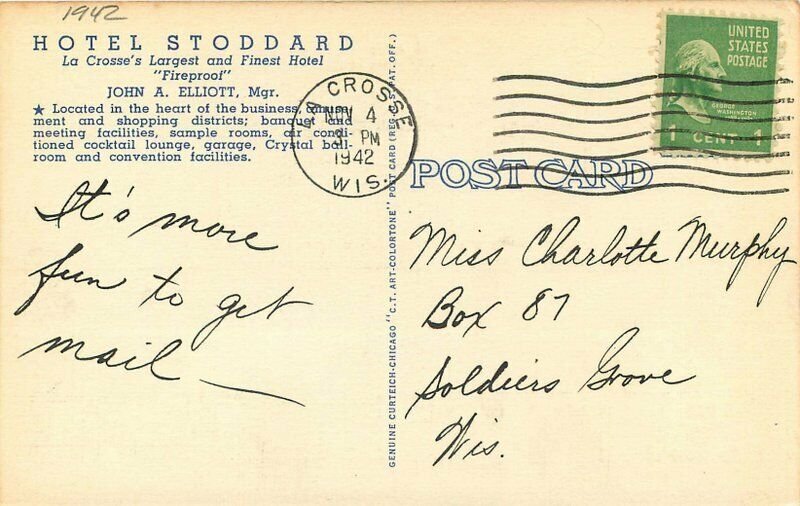 1942
HOTEL STODDARD
La Crosse's Largest and Finest Hotel
"Fireproof"
JOHN A. ELLIOTT, Mgr.
★ Located in the heart of the business, amuse-
ment and shopping districts; banquet and
meeting facilities, sample rooms, air condi-
tioned cocktail lounge, garage, Crystal ball-
room and convention facilities.
It's more
fun to get
mail —
GENUINE CURTEICH-CHICAGO "C.T. ART-COLORTONE" POST CARD (REG. U.S. PAT. OFF.)
CROSSE
NOV 4
PM
1942
WIS.
UNITED
STATES
POSTAGE
GEORGE
WASHINGTON
CENT 1
POST CARD
Miss Charlotte Murphy
Box 87
Soldiers Grove
Wis.